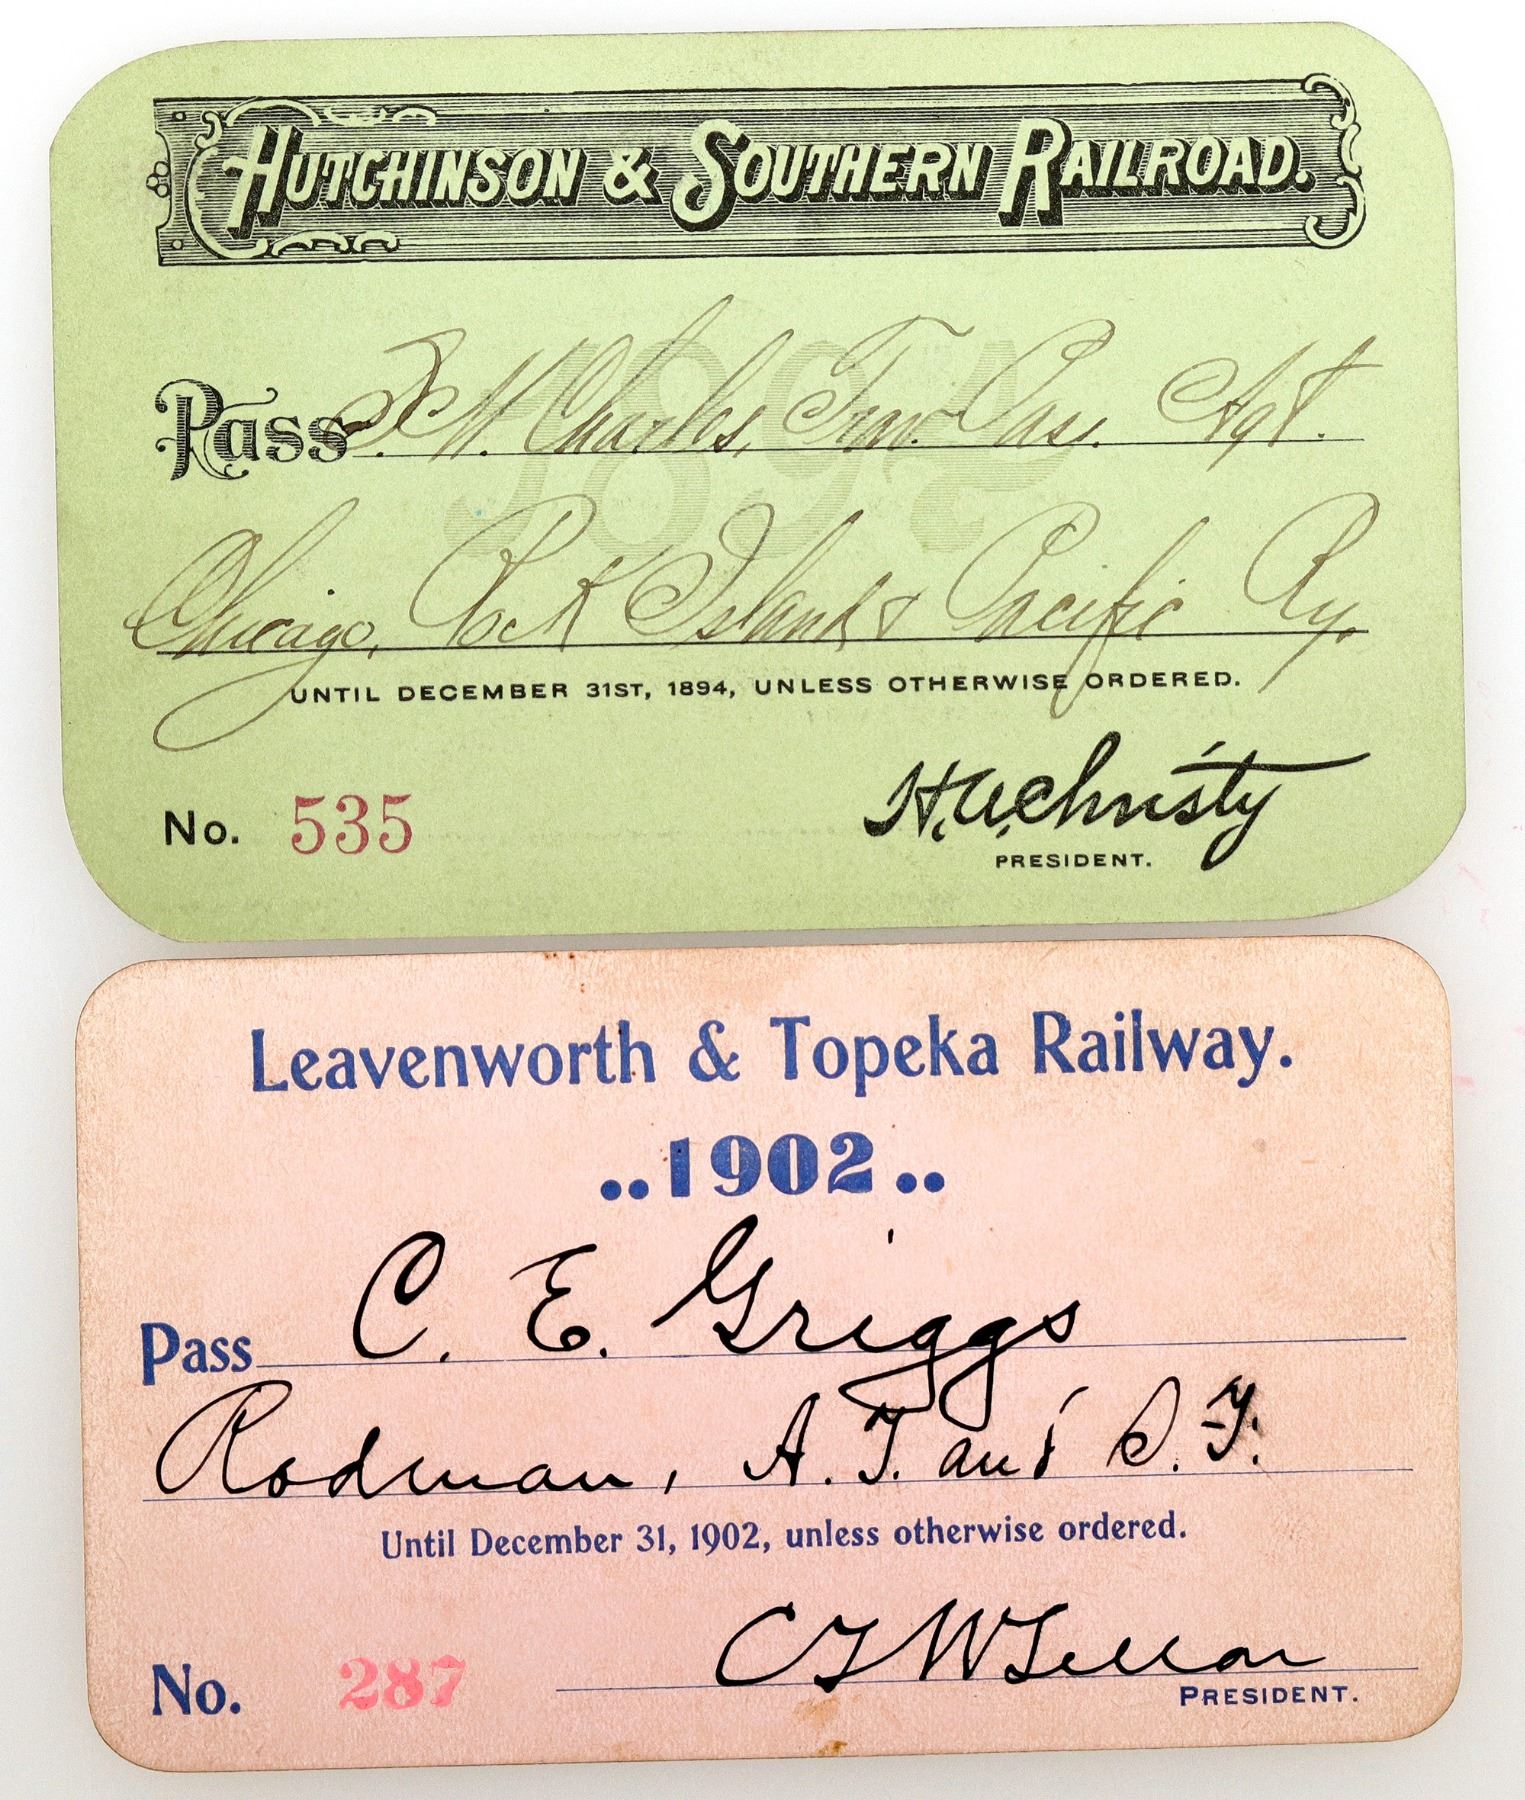 HUTCHINSON & SOUTHERN RAILROAD.
1894
Pass W. Charles, Trav. Pass. Agt.
Chicago, Rock Island & Pacific Ry.
UNTIL DECEMBER 31ST, 1894, UNLESS OTHERWISE ORDERED.
H. A. Christy
No. 535
PRESIDENT.
Leavenworth & Topeka Railway.
..1902..
Pass C. E. Griggs
Rodman, A. T. and S. F.
Until December 31, 1902, unless otherwise ordered.
No. 287
PRESIDENT.